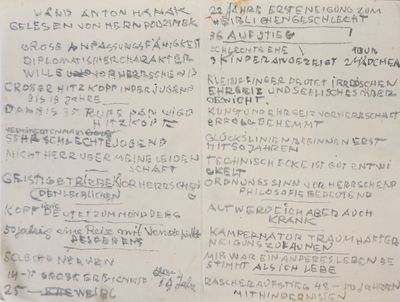 HAND ANTON HANAK
GELESEN VON HERRN DOZINEK
GROSE ANPASSUNGSFÄHIGKEIT
DIPLOMATISCHER CHARAKTER
WILLE VORHERRSCHEND
GROSER HITZKOPF IN DER JUGEND
BIS 18 JAHRE
DAN BIS 35 RUHE DAN WIED
HITZKOPF
SEHR SCHLECHTE JUGEND
NICHT HERR ÜBER MEINE LEIDEN
SCHAFT
GEISTIGBETRIEBE VORHERRSCHEN
DEN LEIBLICHEN
KOPF DEUTET ZUM MONDBERG
50 jährig eine Reise mit
BESSERES
SCHLECHTE NERVEN
14-15 GROSE EREIGNISSE
25 WEIBL
22 JAHRE ERSTE NEIGUNG ZUM
WEIBLICHEN GESCHLECHT
36 AUFSTIEG
SCHLECHTE EHE 1 BUB
3 KINDER ANGEZEIGT 2 MÄDCHEN
KLEINFINGER DEUTET IRRDISCHEN
EHRGEIZ UND SEELISCHES
GEWICHT.
KUNST UND EHRGEIZ VORHERRSCHAFT
ERFOLG GEHEMMT
GLÜCKSLINIEN BEGINNEN ERST
MIT 50 JAHREN
TECHNISCH ECKE IST GUT ENTWI
CKELT
ORDNUNGSSINN VORHERRSCHEND
PHILOSOFIE BEDEUTEND
ALT WERDE ICH ABER AUCH
KRANK
KAMPERNATUR TRAUMHAFTER
NEIGUNG ZU BAUMEN
MIR WAR EIN ANDERES LEBEN BE
STIMMT ALS ICH LEBE
RASCHER AUFSTIEG 48-50 JAHREN
MIT HINDERNISSEN